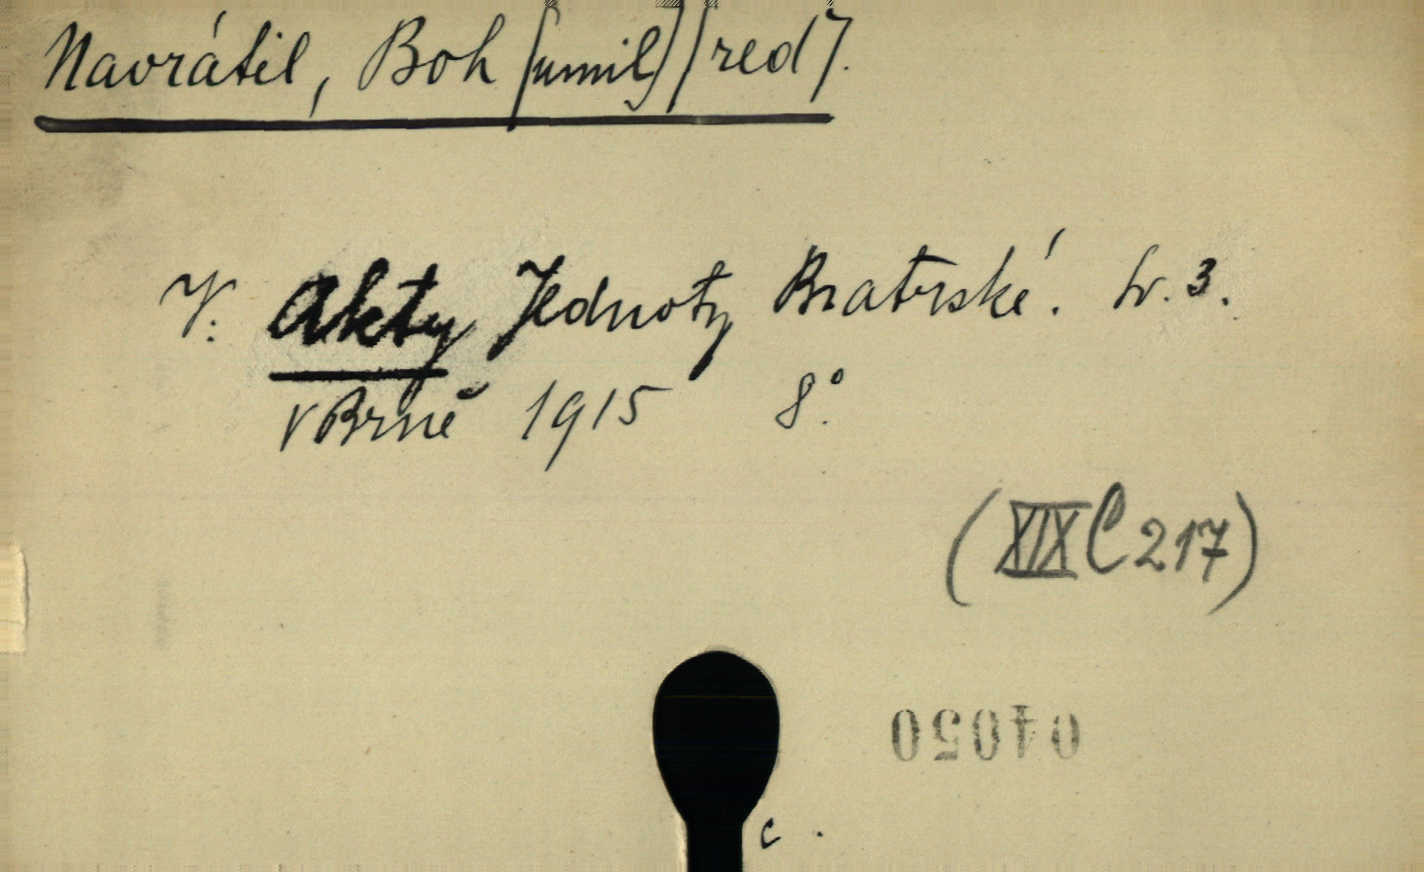 Navrátil, Boh[umil] [red].
V: Akty Jednoty Bratrské. Sv. 3.
V Brně 1915 8°.
(XIX C 217)
04050
c .